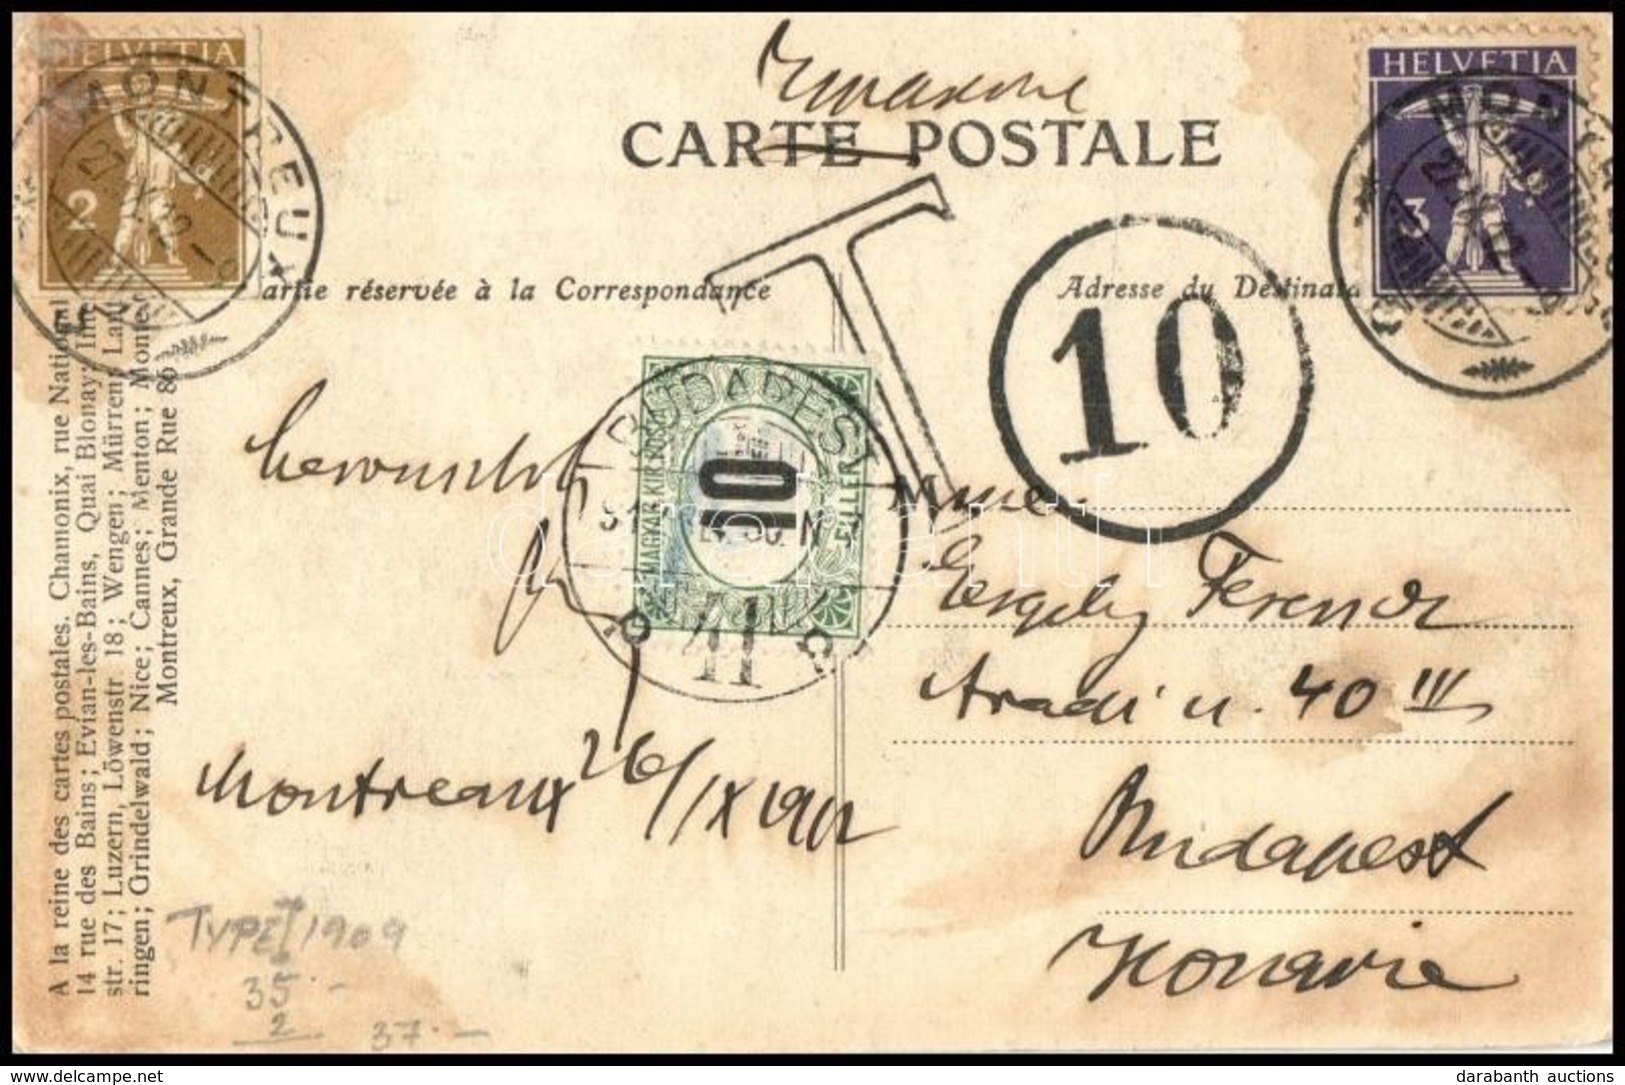 HELVETIA
2
MONTREUX
27. IX. 12. – 9
HELVETIA
3
MONTREUX
Imprimé
CARTE POSTALE
Partie réservée à la Correspondance
Adresse du Destinata
T
10
A la reine des cartes postales. Chamonix, rue National
14 rue des Bains; Evian-les-Bains, Quai Blonay; Inte
str. 17; Luzern, Löwenstr 18; Wengen; Mürren; Laut
ringen; Grindelwald; Nice; Cannes; Menton; Monte
Montreux, Grande Rue 80
MAGYAR KIR. POSTA
10
FILLÉR
BUDAPEST
41
Mme.
Gergely Ferencz
Aradi u. 40 III
Budapest
Hongrie
Montreaux 26/IX 1912
TYPE I 1909
35.-
2
37.-
darabanth
delcampe.net
darabanth auctions